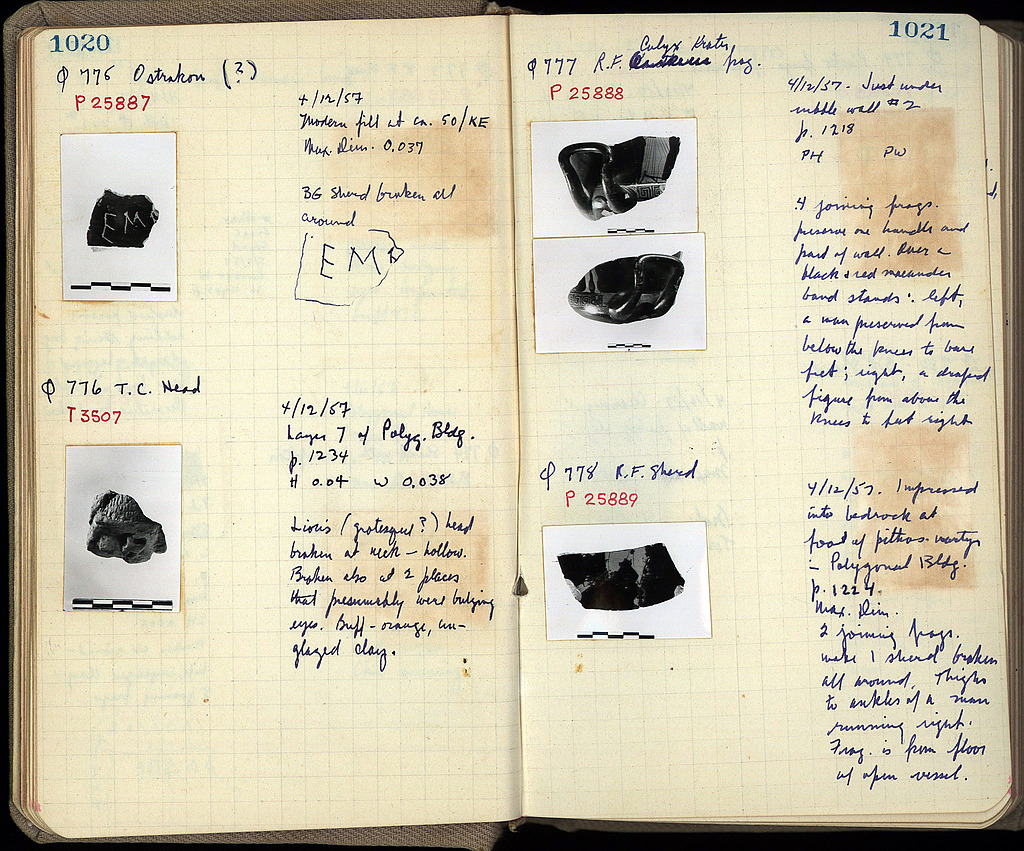 1020
Φ 775 Ostrakon (?)
P 25887
4/12/57
Modern fill at ca. 50/KE
Max. Dim. 0.037
BG Sherd broken all
around
EM
EM
Φ 776 T.C. Head
T 3507
4/12/57
Layer 7 of Polyg. Bldg.
p. 1234
H 0.04 W 0.038
Lion's (grotesque?) head
broken at neck – hollow.
Broken also at 2 places
that presumably were bulging
eyes. Buff-orange, un-
glazed clay.
1021
Calyx Krater
Φ 777 R.F. frag.
P 25888
4/12/57. Just under
rubble wall #2
p. 1218
PH PW
4 joining frags.
preserve one handle and
part of wall. Over a
black & red maeander
band stands: left,
a man preserved from
below the knees to bare
feet; right, a draped
figure from above the
knees to feet right
Φ 778 R.F. Sherd
P 25889
4/12/57. Impressed
into bedrock at
foot of pithos
– Polygonal Bldg.
p. 1224.
Max. Dim.
2 joining frags.
make 1 sherd broken
all around. Thighs
to ankles of a man
running right.
Frag. is from floor
of open vessel.